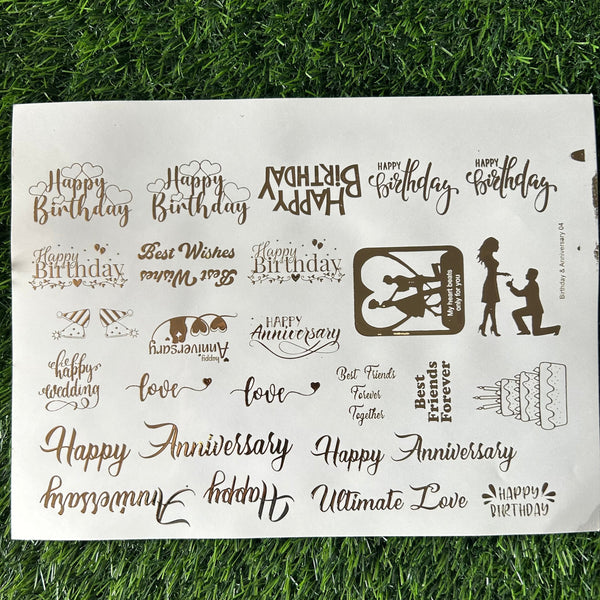 Happy
Birthday
Happy
Birthday
HAPPY
BIRTHDAY
HAPPY
BIRTHDAY
HAPPY
birthday
HAPPY
birthday
Happy
Birthday
Best Wishes
Best Wishes
Happy
Birthday
My heart beats
only for you
Birthday & Anniversary 04
Happy
Anniversary
HAPPY
Anniversary
happy
wedding
love
love
Best Friends
Forever
Together
Best
Friends
Forever
Happy Anniversary
Happy Anniversary
Happy Anniversary
Ultimate Love
HAPPY
BIRTHDAY